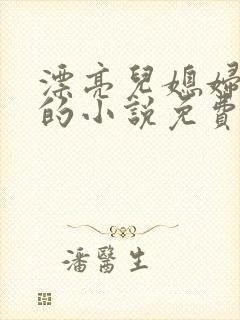 漂亮兒媳婦
的小說免費
潘醫生